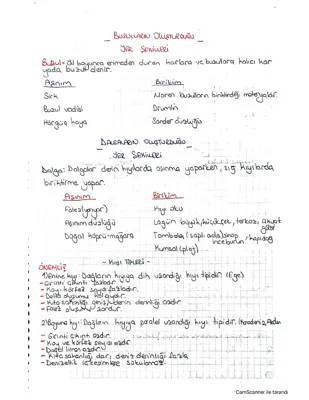 BUZULLARIN OLUŞTURDUĞU
YER ŞEKİLLERİ
Buzul = yıl boyunca erimeden duran karlara ve buzullara kalıcı kar
yada buzul denir.
Aşınım Birikim
Sirk Moren buzulların biriktirdiği materyaldir.
Buzul vadisi Drumlin
Hörgüç kaya Sander düzlüğü
DALGALARIN OLUŞTURDUĞU
YER ŞEKİLLERİ
Dalga: Dalgalar derin kıyılarda aşınma yaparken, sığ kıyılarda
biriktirme yapar.
Aşınım Birikim
Falez (yalıyar) Kıyı oku
Aşınım düzlüğü Lagün büyük, küçükçek, terkos,
Doğal köprü-mağara Tombolo (saplı ada)
Kumsal (plaj)
Kıyı TİPLERİ
ÖNEMLİ
1) Enine kıyı: Dağların kıyıya dik uzandığı kıyı tipidir. (Ege)
- Girinti çıkıntı fazladır.
- Koy, körfez sayısı fazladır.
- Delta oluşumu kolaydır.
- Kıta sahanlığı geniş derinliği azdır.
- Falez oluşumu zordur.
2) Boyuna kıyı: Dağların kıyıya paralel uzandığı kıyı tipidir.
- Girinti çıkıntı azdır.
- Koy ve körfez sayısı azdır.
- Doğal liman azdır.
- Kıta sahanlığı dar, deniz derinliği fazla
CamScanner ile tarandı